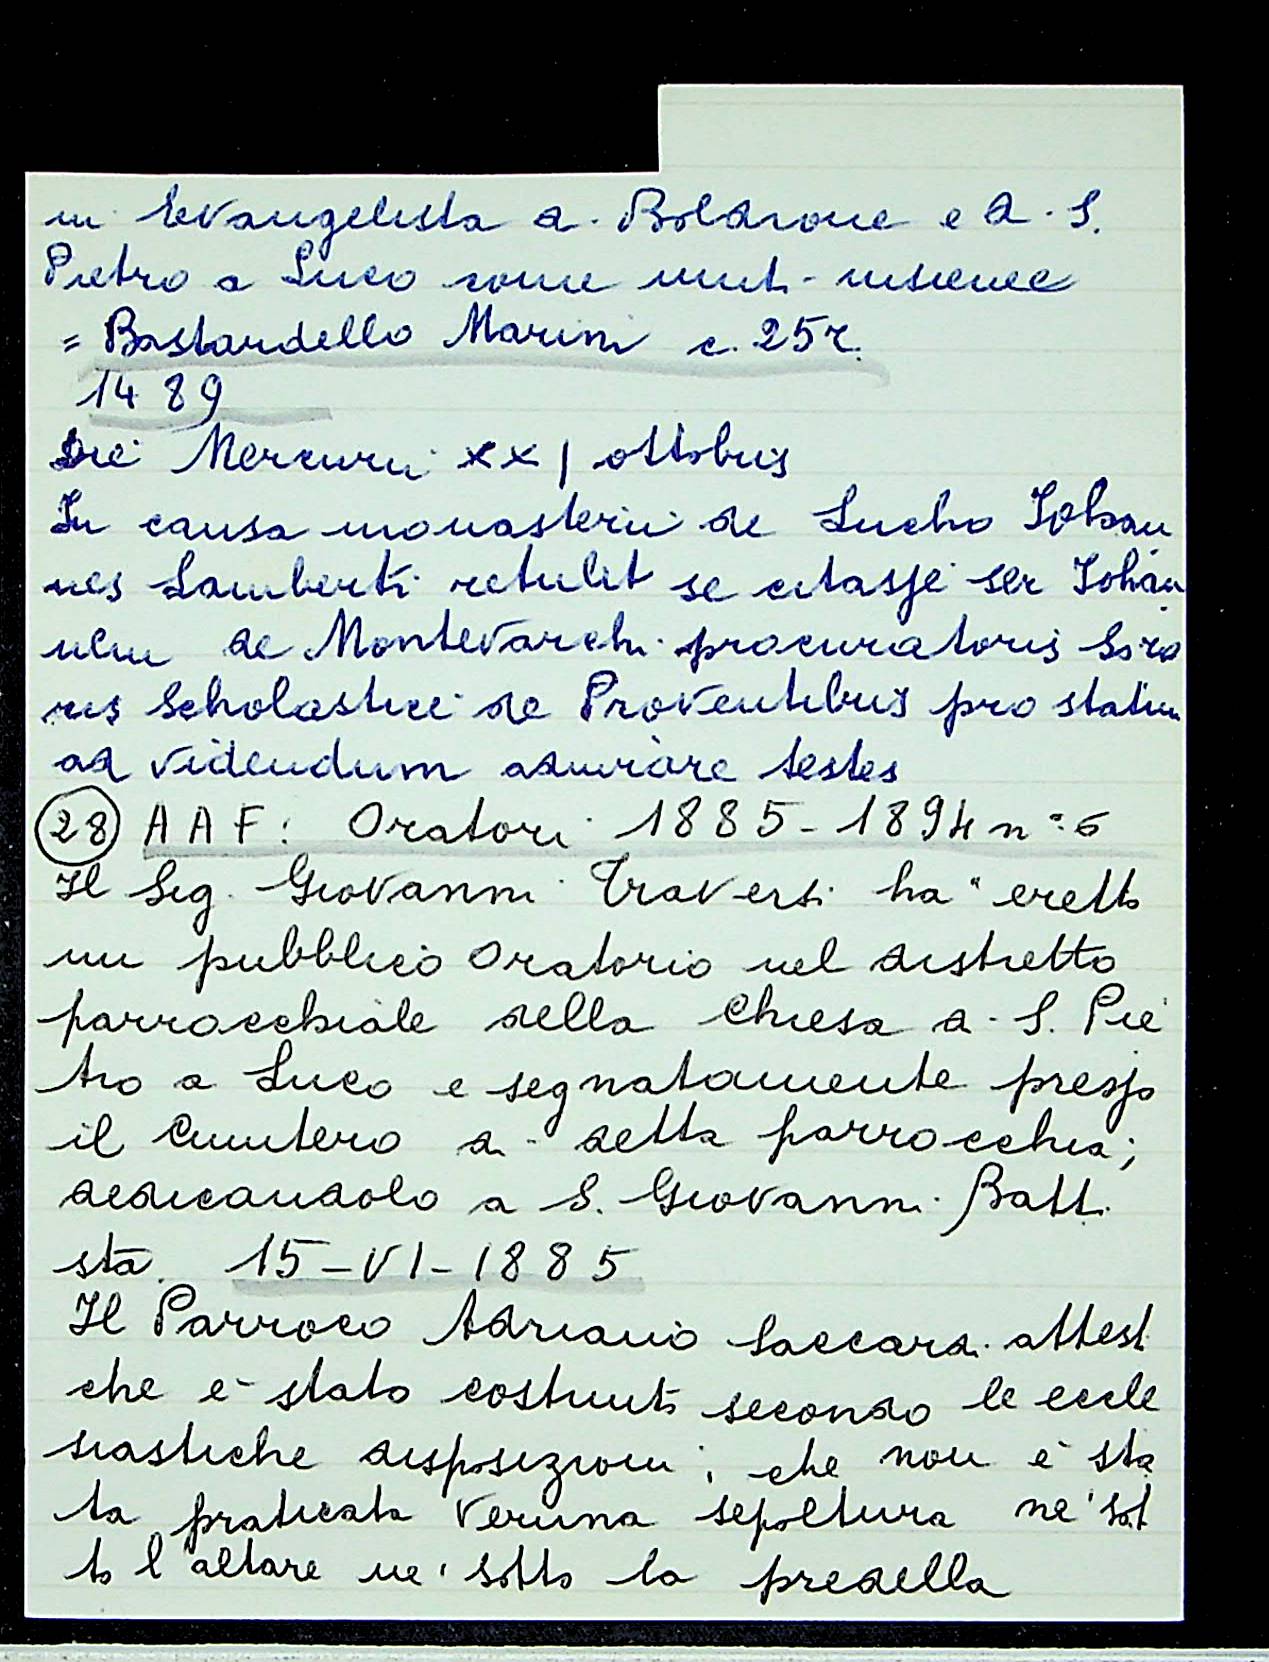 ni Evangelista di Boldrone e di S.
Pietro a Luco come uniti insieme
= Bastardello Marini c. 25r.
1489
Die Mercurii XXI ottobris
In causa monasterii de Lucho Johan
nes Lamberti retulit se citasse ser Johan
nem de Montevarchi procuratoris Soro
ris Scholastice de Proventibus pro statim
ad videndum adiurare testes
(28) AAF: Oratori 1885-1894 n° 6
Il Sig. Giovanni Traversi ha "eretto
un pubblico Oratorio nel distretto
parrocchiale della Chiesa di S. Pie
tro a Luco e segnatamente presso
il Cimitero di detta parrocchia;
dedicandolo a S. Giovanni Batti
sta. 15-VI-1885
Il Parroco Adriano Saccardi attest
che è stato costruito secondo le eccle
siastiche disposizioni; che non è sta
ta praticata veruna sepoltura né sot
to l'altare né sotto la predella